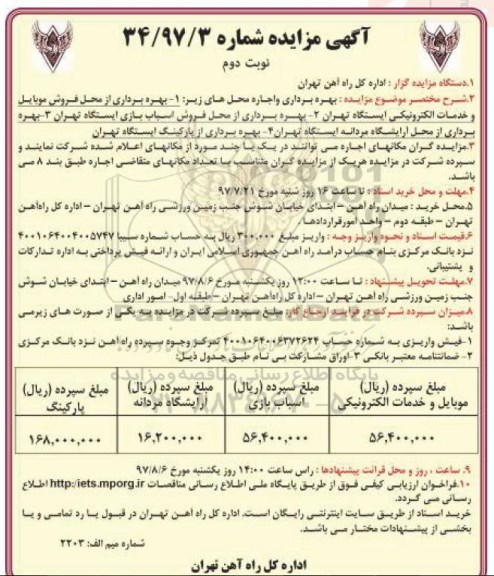 آگهی مزایده شماره ۳۴/۹۷/۳
نوبت دوم
۱.دستگاه مزایده گزار : اداره کل راه آهن تهران
۲.شرح مختصر موضوع مزایده : بهره برداری واجاره محل های زیر: ۱- بهره برداری از محل فروش موبایل
و خدمات الکترونیکی ایستگاه تهران ۲- بهره برداری از محل فروش اسباب بازی ایستگاه تهران ۳-بهره
برداری از محل آرایشگاه مردانه ایستگاه تهران۴- بهره برداری از پارکینگ ایستگاه تهران
۳.مزایده گران مکانهای اجاره می توانند در یک یا چند مورد از مکانهای اعلام شده شرکت نمایند و
سپرده شرکت در مزایده هریک از مزایده گران متناسب با تعداد مکانهای متقاضی اجاره طبق بند ۸ می
باشد.
۴.مهلت و محل خرید اسناد : تا ساعت ۱۶ روز شنبه مورخ ۹۷/۷/۲۱
۵.محل خرید : میدان راه آهن – ابتدای خیابان شوش جنب زمین ورزشی راه آهن تهران – اداره کل راه‌آهن
تهران – طبقه دوم – واحد امورقراردادها.
۶.قیمت اسناد و نحوه واریز وجه : واریز مبلغ ۳۰۰،۰۰۰ ریال به حساب شماره سیبا ۴۰۰۱۰۶۴۰۰۴۰۰۵۷۴۷
نزد بانک مرکزی بنام حساب درآمد راه آهن جمهوری اسلامی ایران و ارائه فیش پرداختی به اداره تدارکات
و پشتیبانی.
۷.مهلت تحویل پیشنهاد : تا ساعت ۱۲:۰۰ روز یکشنبه مورخ ۹۷/۸/۶ میدان راه آهن – ابتدای خیابان شوش
جنب زمین ورزشی راه آهن تهران – اداره کل راه‌آهن تهران – طبقه اول- امور اداری
۸.میزان سپرده شرکت در فرایند ارجاع کار: مبلغ سپرده شرکت در مزایده به یکی از صورت های زیرمی
باشد:
۱-فیش واریزی به شماره حساب ۴۰۰۱۰۶۴۰۰۶۳۷۲۶۲۴ تمرکز وجوه سپرده راه آهن نزد بانک مرکزی
۲- ضمانتنامه معتبر بانکی ۳-اوراق مشارکت بی نام طبق جدول ذیل:
مبلغ سپرده (ریال) موبایل و خدمات الکترونیکی
مبلغ سپرده (ریال) اسباب بازی
مبلغ سپرده (ریال) آرایشگاه مردانه
مبلغ سپرده (ریال) پارکینگ
۵۶,۴۰۰,۰۰۰ ۵۶,۴۰۰,۰۰۰ ۱۶,۲۰۰,۰۰۰ ۱۶۸,۰۰۰,۰۰۰
۹. ساعت ، روز و محل قرائت پیشنهادها : راس ساعت ۱۴:۰۰ روز یکشنبه مورخ ۹۷/۸/۶
۱۰.فراخوان ارزیابی کیفی فوق از طریق پایگاه ملی اطلاع رسانی مناقصات http:/iets.mporg.ir اطلاع
رسانی می گردد.
خرید اسناد از طریق سایت اینترنتی رایگان است. اداره کل راه آهن تهران در قبول یا رد تمامی و یا
بخشی از پیشنهادات مختار می باشد.
شماره میم الف: ۲۲۰۳
اداره کل راه آهن تهران